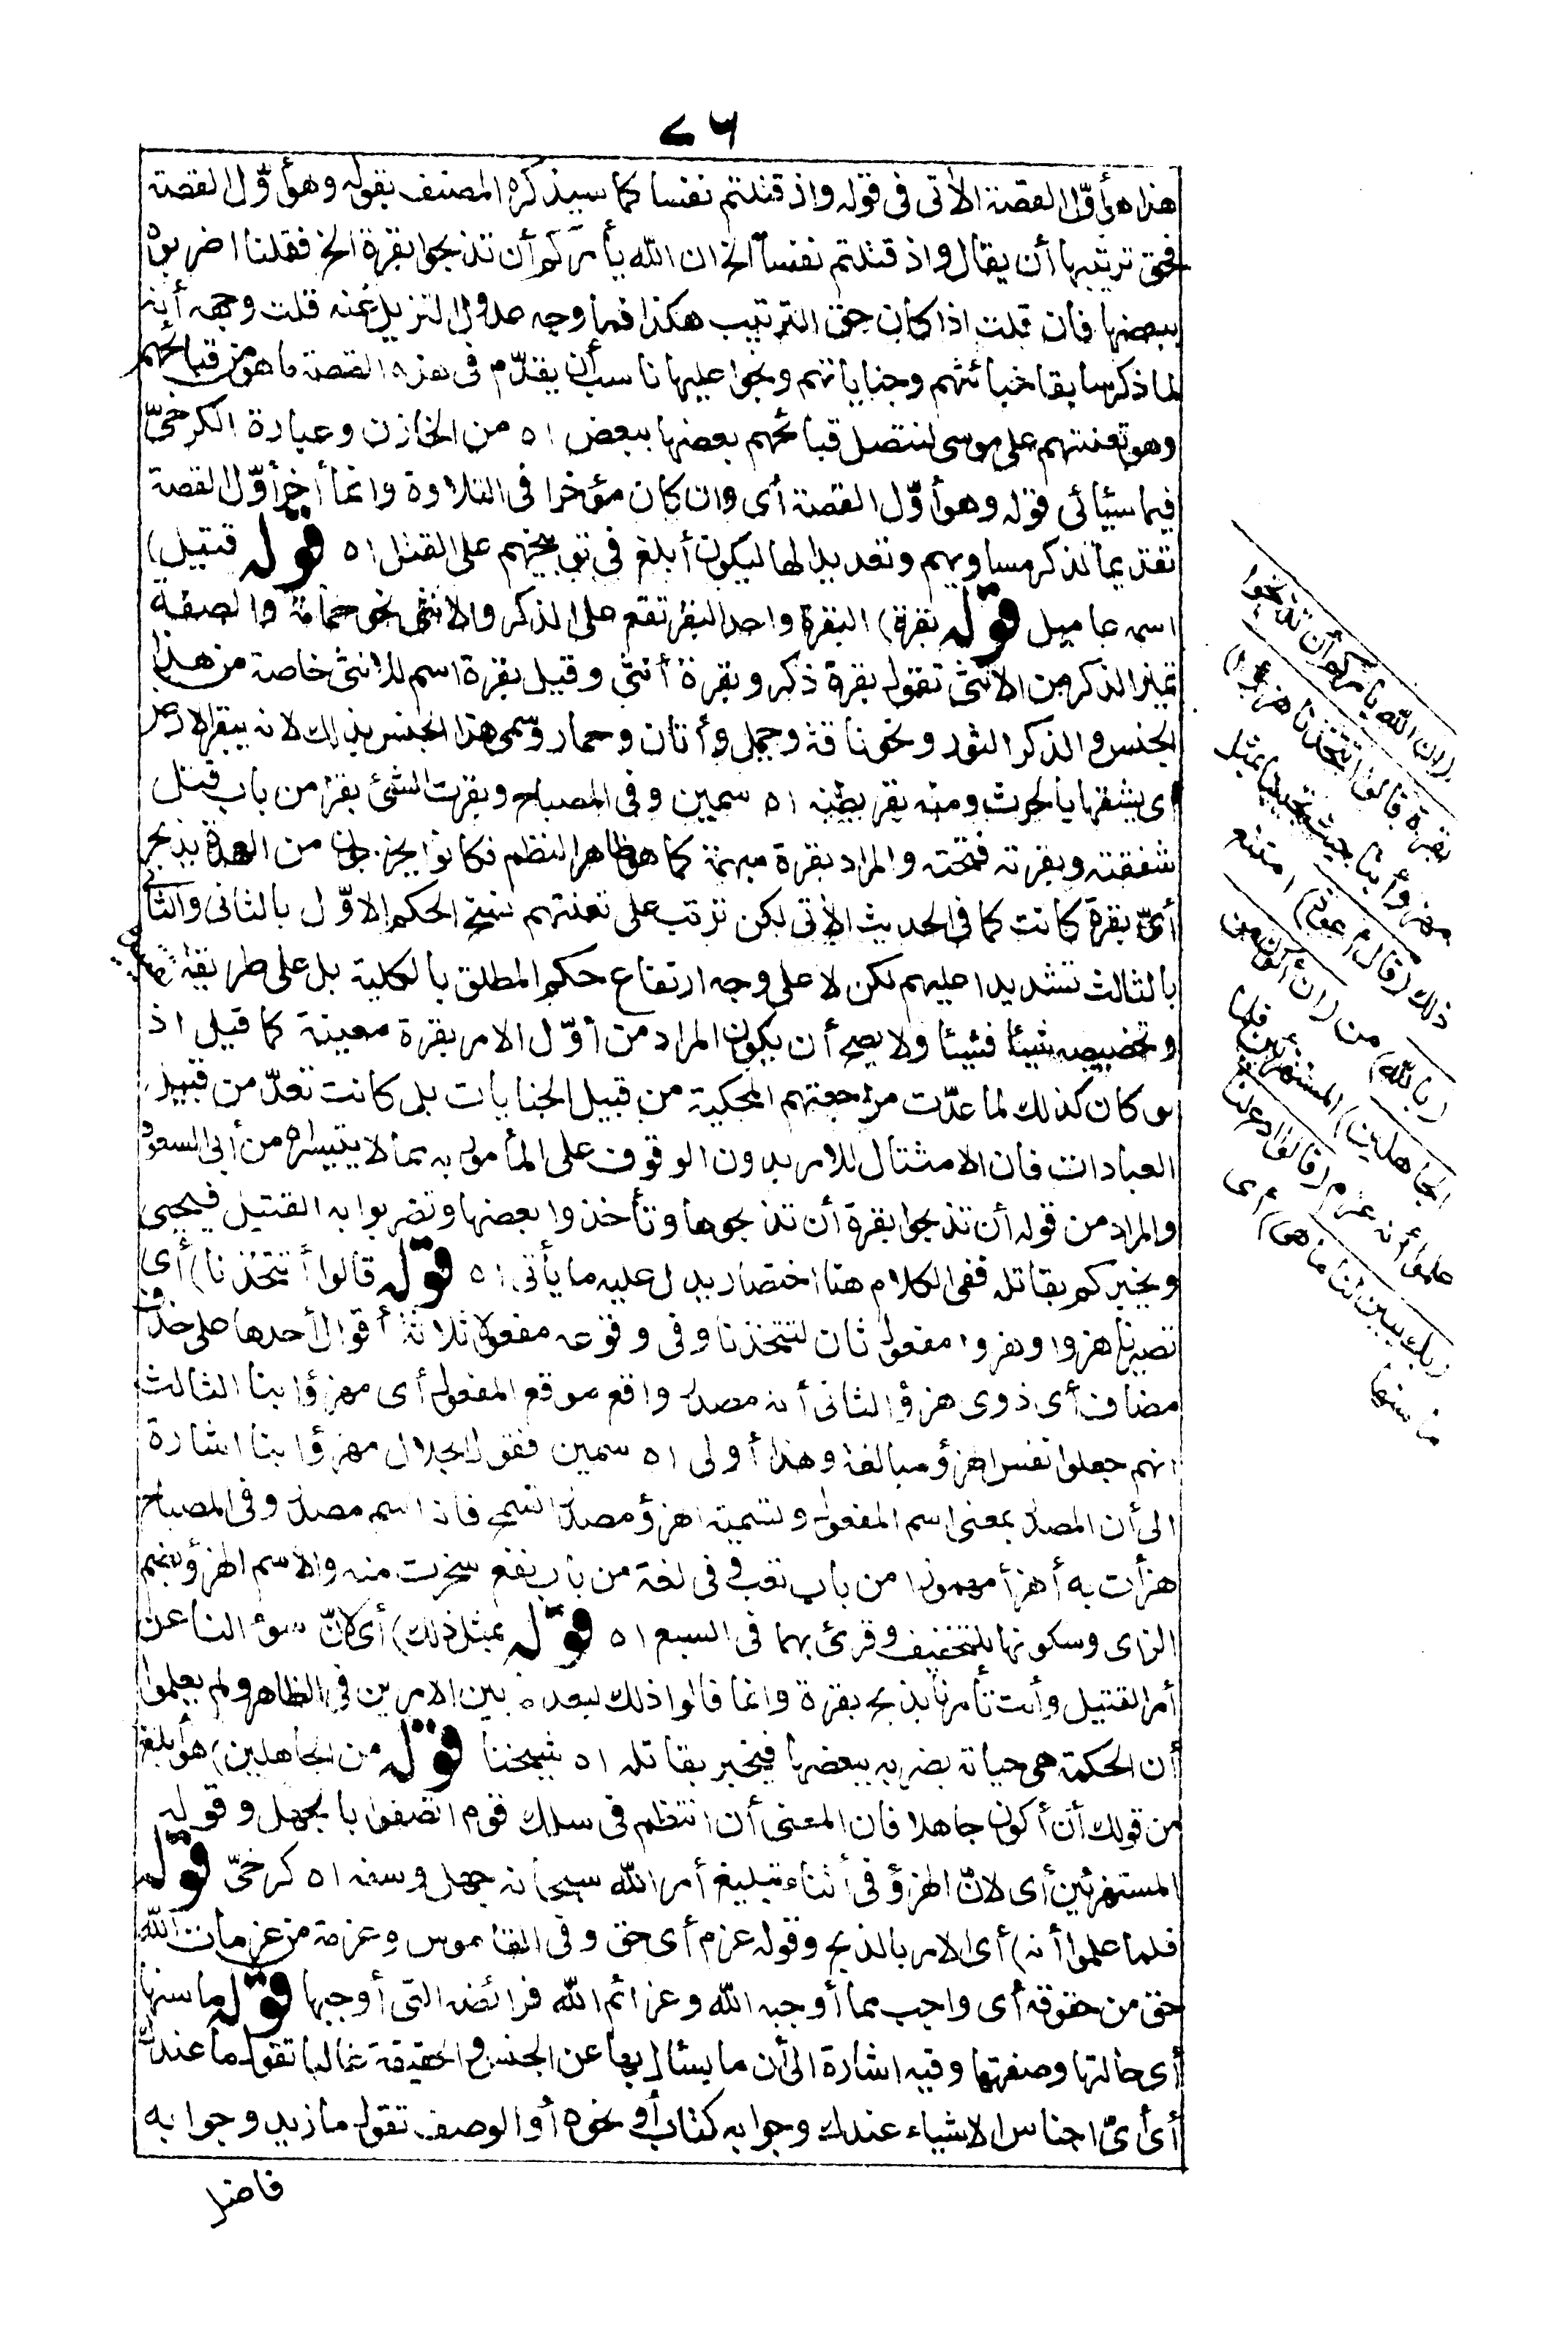 ٧٦
هذا هو أوّل القصة الآتى فى قوله واذ قتلتم نفسا كما سيذكره المصنف بقوله وهو أوّل القصة
فحق ترتيبها أن يقال واذ قتلتم نفسا الخ ان الله يأمركم أن تذبحوا بقرة الخ فقلنا اضربوه
ببعضها فان قلت اذا كان حق الترتيب هكذا فما وجه عدول التنزيل عنه قلت وجهه أنه
لما ذكر سابقا خبائثهم وجناياتهم وبخوا عليها ناسب أن يقدّم فى هذه القصة ما هو من قبائحهم
وهو تعنتهم على موسى لتتصل قبائحهم بعضها ببعض اه من الخازن وعبارة الكرخىّ
فيما سيأتى قوله وهو أوّل القصة أى وان كان مؤخرا فى التلاوة وانما أخر أوّل القصة
تقديما لذكر مساويهم وتعديدا لها ليكون أبلغ فى توبيخهم على القتل اه قوله قتيل)
اسمه عاميل قوله بقرة) البقرة واحد البقر تقع على الذكر والأنثى نحو حمامة والصفة
تميز الذكر من الأنثى تقول بقرة ذكر وبقرة أنثى وقيل بقرة اسم للانثى خاصة من هذا
الجنس والذكر الثور ونحو ناقة وجمل وأتان وحمار وسمى هذا الجنس بذلك لانه يبقر الارض
أى يشقها بالحرث ومنه بقر بطنه اه سمين وفى المصباح وبقرت الشئ بقرا من باب قتل
شققته وبقرته فتحته والمراد بقرة مبهمة كما هو ظاهر النظم فكانوا يخرجون من العهدة بذبح
أىّ بقرة كانت كما فى الحديث الآتى لكن ترتب على تعنتهم نسخ الحكم الاوّل بالثانى والثانى
بالثالث تشديدا عليهم لكن لا على وجه ارتفاع حكم المطلق بالكلية بل على طريقة
وتخصيصه شيئا فشيئا ولا يصح أن يكون المراد من أوّل الامر بقرة معينة كما قيل اذ
لو كان كذلك لما عدّت مراجعتهم المحكية من قبيل الجنايات بل كانت تعدّ من قبيل
العبادات فان الامتثال للامر بدون الوقوف على المأمور به مما لا يتيسر اه من أبى السعود
والمراد من قوله أن تذبحوا بقرة أن تذبحوها وتأخذوا بعضها وتضربوا به القتيل فيحيى
ويخبركم بقاتله ففى الكلام هنا اختصار يدل عليه ما يأتى اه قوله قالوا أتتخذنا) أى
تصيرنا هزوا وهزوا مفعول ثان لتتخذنا وفى وقوعه مفعولا ثلاثة أقوال أحدها على حذف
مضاف أى ذوى هزؤ الثانى أنه مصدر واقع موقع المفعول أى مهزوأ بنا الثالث
انهم جعلوا نفس الهزؤ مبالغة وهذا أولى اه سمين فقول الجلال مهزوأ بنا اشارة
الى أن المصدر بمعنى اسم المفعول وتسمية الهزؤ مصدرا تسمح فانه اسم مصدر وفى المصباح
هزأت به أهزأ مهموزا من باب تعب وفى لغة من باب نفع سخرت منه والاسم الهزؤ بضم
الزاى وسكونها للتخفيف وقرئ بهما فى السبع اه قوله بمثل ذلك) أى لانّ سؤالنا عن
أمر القتيل وأنت تأمرنا بذبح بقرة وانما قالوا ذلك لبعد ما بين الامرين فى الظاهر ولم يعلموا
أن الحكمة هى حياته بضربه ببعضها فيخبر بقاتله اه شيخنا قوله من الجاهلين) هو أبلغ
من قولك أن أكون جاهلا فان المعنى أن انتظم فى سلك قوم اتصفوا بالجهل وقوله
المستهزئين أى لانّ الهزؤ فى أثناء تبليغ أمر الله سبحانه جهل وسفه اه كرخىّ قوله
فلما علموا أنه) أى الامر بالذبح وقوله عزم أى حق وفى القاموس وعزمة من عزمات الله
حق من حقوقه أى واجب مما أوجبه الله وعزائم الله فرائضه التى أوجبها قوله ما سنها
أى حالتها وصفتها وفيه اشارة الى أن ما يسأل بها عن الجنس والحقيقة غالبا تقول ما عندك
أى أىّ اجناس الاشياء عندك وجوابه كتاب أو نحوه أو الوصف تقول ما زيد وجوابه
فاضل
(ان الله يأمركم أن تذبحوا
بقرة قالوا أتتخذنا هزوا)
مهزوأ بنا حيث تجيبنا بمثل
ذلك (قال أعوذ) امتنع
(بالله) من (ان أكون من
الجاهلين) المستهزئين فلما
علموا أنه عزم (قالوا ادع لنا
ربك يبين لنا ما هى) أى
ما سنها